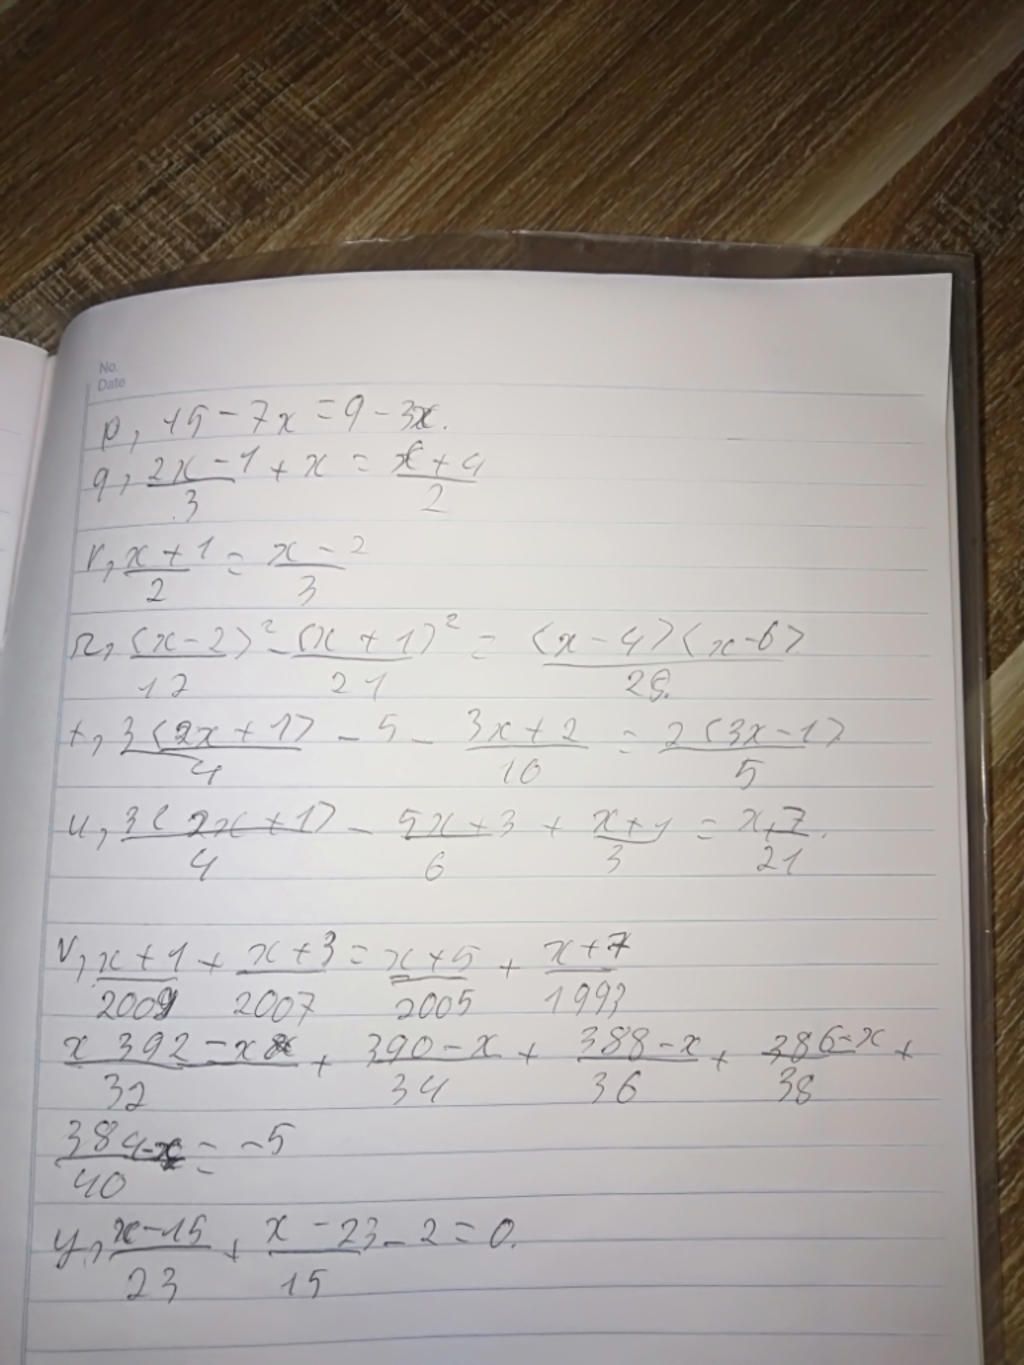 No.
Date
p, 15 - 7x = 9 - 3x.
q, \frac{2x - 1}{3} + x = \frac{x + 4}{2}
r, \frac{x + 1}{2} = \frac{x - 2}{3}
s, \frac{(x - 2)^2}{12} - \frac{(x + 1)^2}{21} = \frac{(x - 4)(x - 6)}{28}.
t, \frac{3(2x + 1)}{4} - 5 - \frac{3x + 2}{10} = \frac{2(3x - 1)}{5}
u, \frac{3(2x + 1)}{4} - \frac{5x + 3}{6} + \frac{x + 1}{3} = \frac{x + 7}{21}.
v, \frac{x + 1}{2009} + \frac{x + 3}{2007} = \frac{x + 5}{2005} + \frac{x + 7}{1993}
x \frac{392 - x}{32} + \frac{390 - x}{34} + \frac{388 - x}{36} + \frac{386 - x}{38} +
\frac{384 - x}{40} = -5
y, \frac{x - 15}{23} + \frac{x - 23}{15} - 2 = 0.